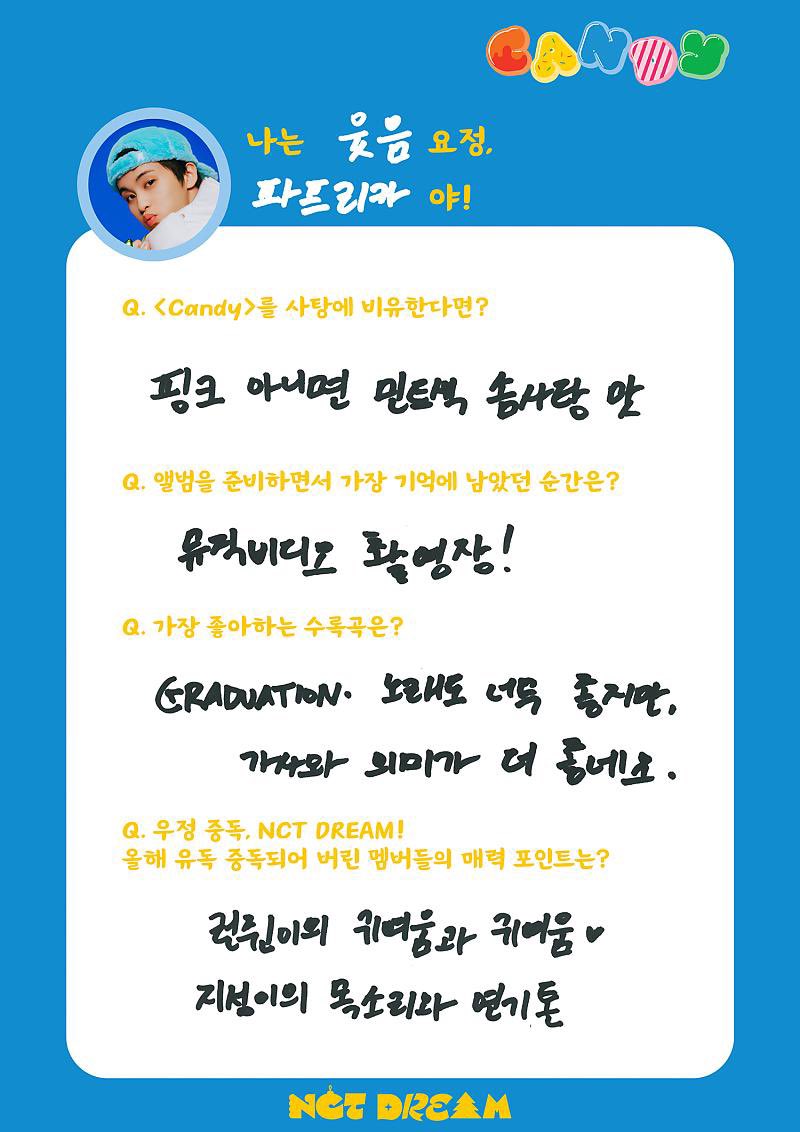 CANDY
나는 웃음 요정,
파프리카 야!
Q. <Candy>를 사탕에 비유한다면?
핑크 아니면 민트색 솜사탕 맛
Q. 앨범을 준비하면서 가장 기억에 남았던 순간은?
뮤직비디오 촬영장!
Q. 가장 좋아하는 수록곡은?
GRADUATION. 노래도 너무 좋지만,
가사와 의미가 더 좋네요.
Q. 우정 중독, NCT DREAM!
올해 유독 중독되어 버린 멤버들의 매력 포인트는?
런쥔이의 귀여움과 귀여움♥
지성이의 목소리와 연기톤
NCT DREAM